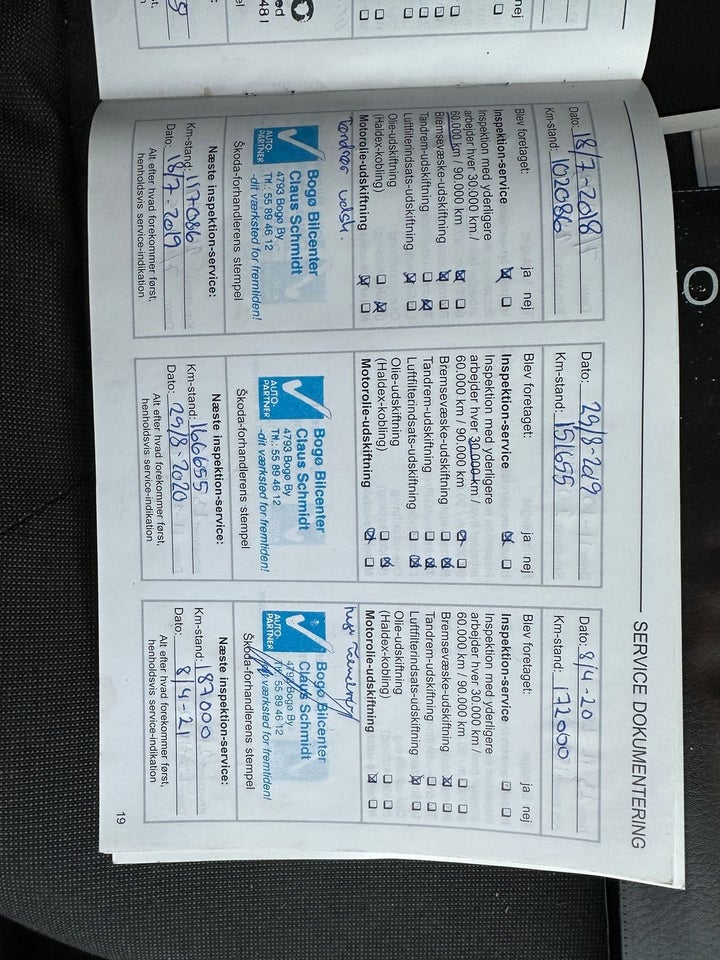 SERVICE DOKUMENTERING
Dato: 18/7-2018
Km-stand: 102086
Blev foretaget: ja nej
Inspektion-service
Inspektion med yderligere
arbejder hver 30.000 km /
60.000 km / 90.000 km
Bremsevæske-udskiftning
Tandrem-udskiftning
Luftfilterindsats-udskiftning
Olie-udskiftning
(Haldex-kobling)
Motorolie-udskiftning
Tændrør udsk.
Bogø Bilcenter
Claus Schmidt
4793 Bogø By
Tlf.: 55 89 46 12
-dit værksted for fremtiden!
AUTO-
PARTNER
Škoda-forhandlerens stempel
Næste inspektion-service:
Km-stand: 117086
Dato: 18/7-2019
Alt efter hvad forekommer først,
henholdsvis service-indikation
Dato: 29/8-2019
Km-stand: 151655
Blev foretaget: ja nej
Inspektion-service
Inspektion med yderligere
arbejder hver 30.000 km /
60.000 km / 90.000 km
Bremsevæske-udskiftning
Tandrem-udskiftning
Luftfilterindsats-udskiftning
Olie-udskiftning
(Haldex-kobling)
Motorolie-udskiftning
Bogø Bilcenter
Claus Schmidt
4793 Bogø By
Tlf.: 55 89 46 12
-dit værksted for fremtiden!
AUTO-
PARTNER
Škoda-forhandlerens stempel
Næste inspektion-service:
Km-stand: 166655
Dato: 29/8-2020
Alt efter hvad forekommer først,
henholdsvis service-indikation
Dato: 8/4-20
Km-stand: 172000
Blev foretaget: ja nej
Inspektion-service
Inspektion med yderligere
arbejder hver 30.000 km /
60.000 km / 90.000 km
Bremsevæske-udskiftning
Tandrem-udskiftning
Luftfilterindsats-udskiftning
Olie-udskiftning
(Haldex-kobling)
Motorolie-udskiftning
Bogø Bilcenter
Claus Schmidt
4793 Bogø By
Tlf.: 55 89 46 12
-dit værksted for fremtiden!
AUTO-
PARTNER
Škoda-forhandlerens stempel
Næste inspektion-service:
Km-stand: 187000
Dato: 8/4-21
Alt efter hvad forekommer først,
henholdsvis service-indikation
19